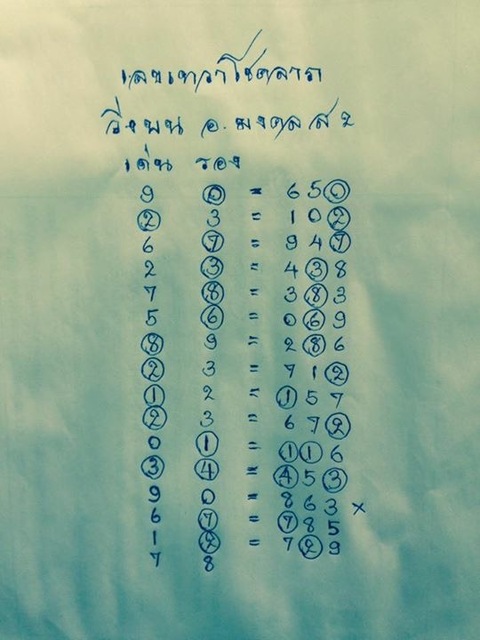 เลขเทวาโชคลาภ
วิ่งบน อ. มงคล ส 2
เด่น รอง
9 0 = 650
2 3 = 102
6 7 = 947
2 3 = 438
7 8 = 383
5 6 = 069
8 9 = 286
2 3 = 712
1 2 = 157
2 3 = 672
0 1 = 116
3 4 = 453
9 0 = 863 ×
6 7 = 785
1 2 = 729
7 8